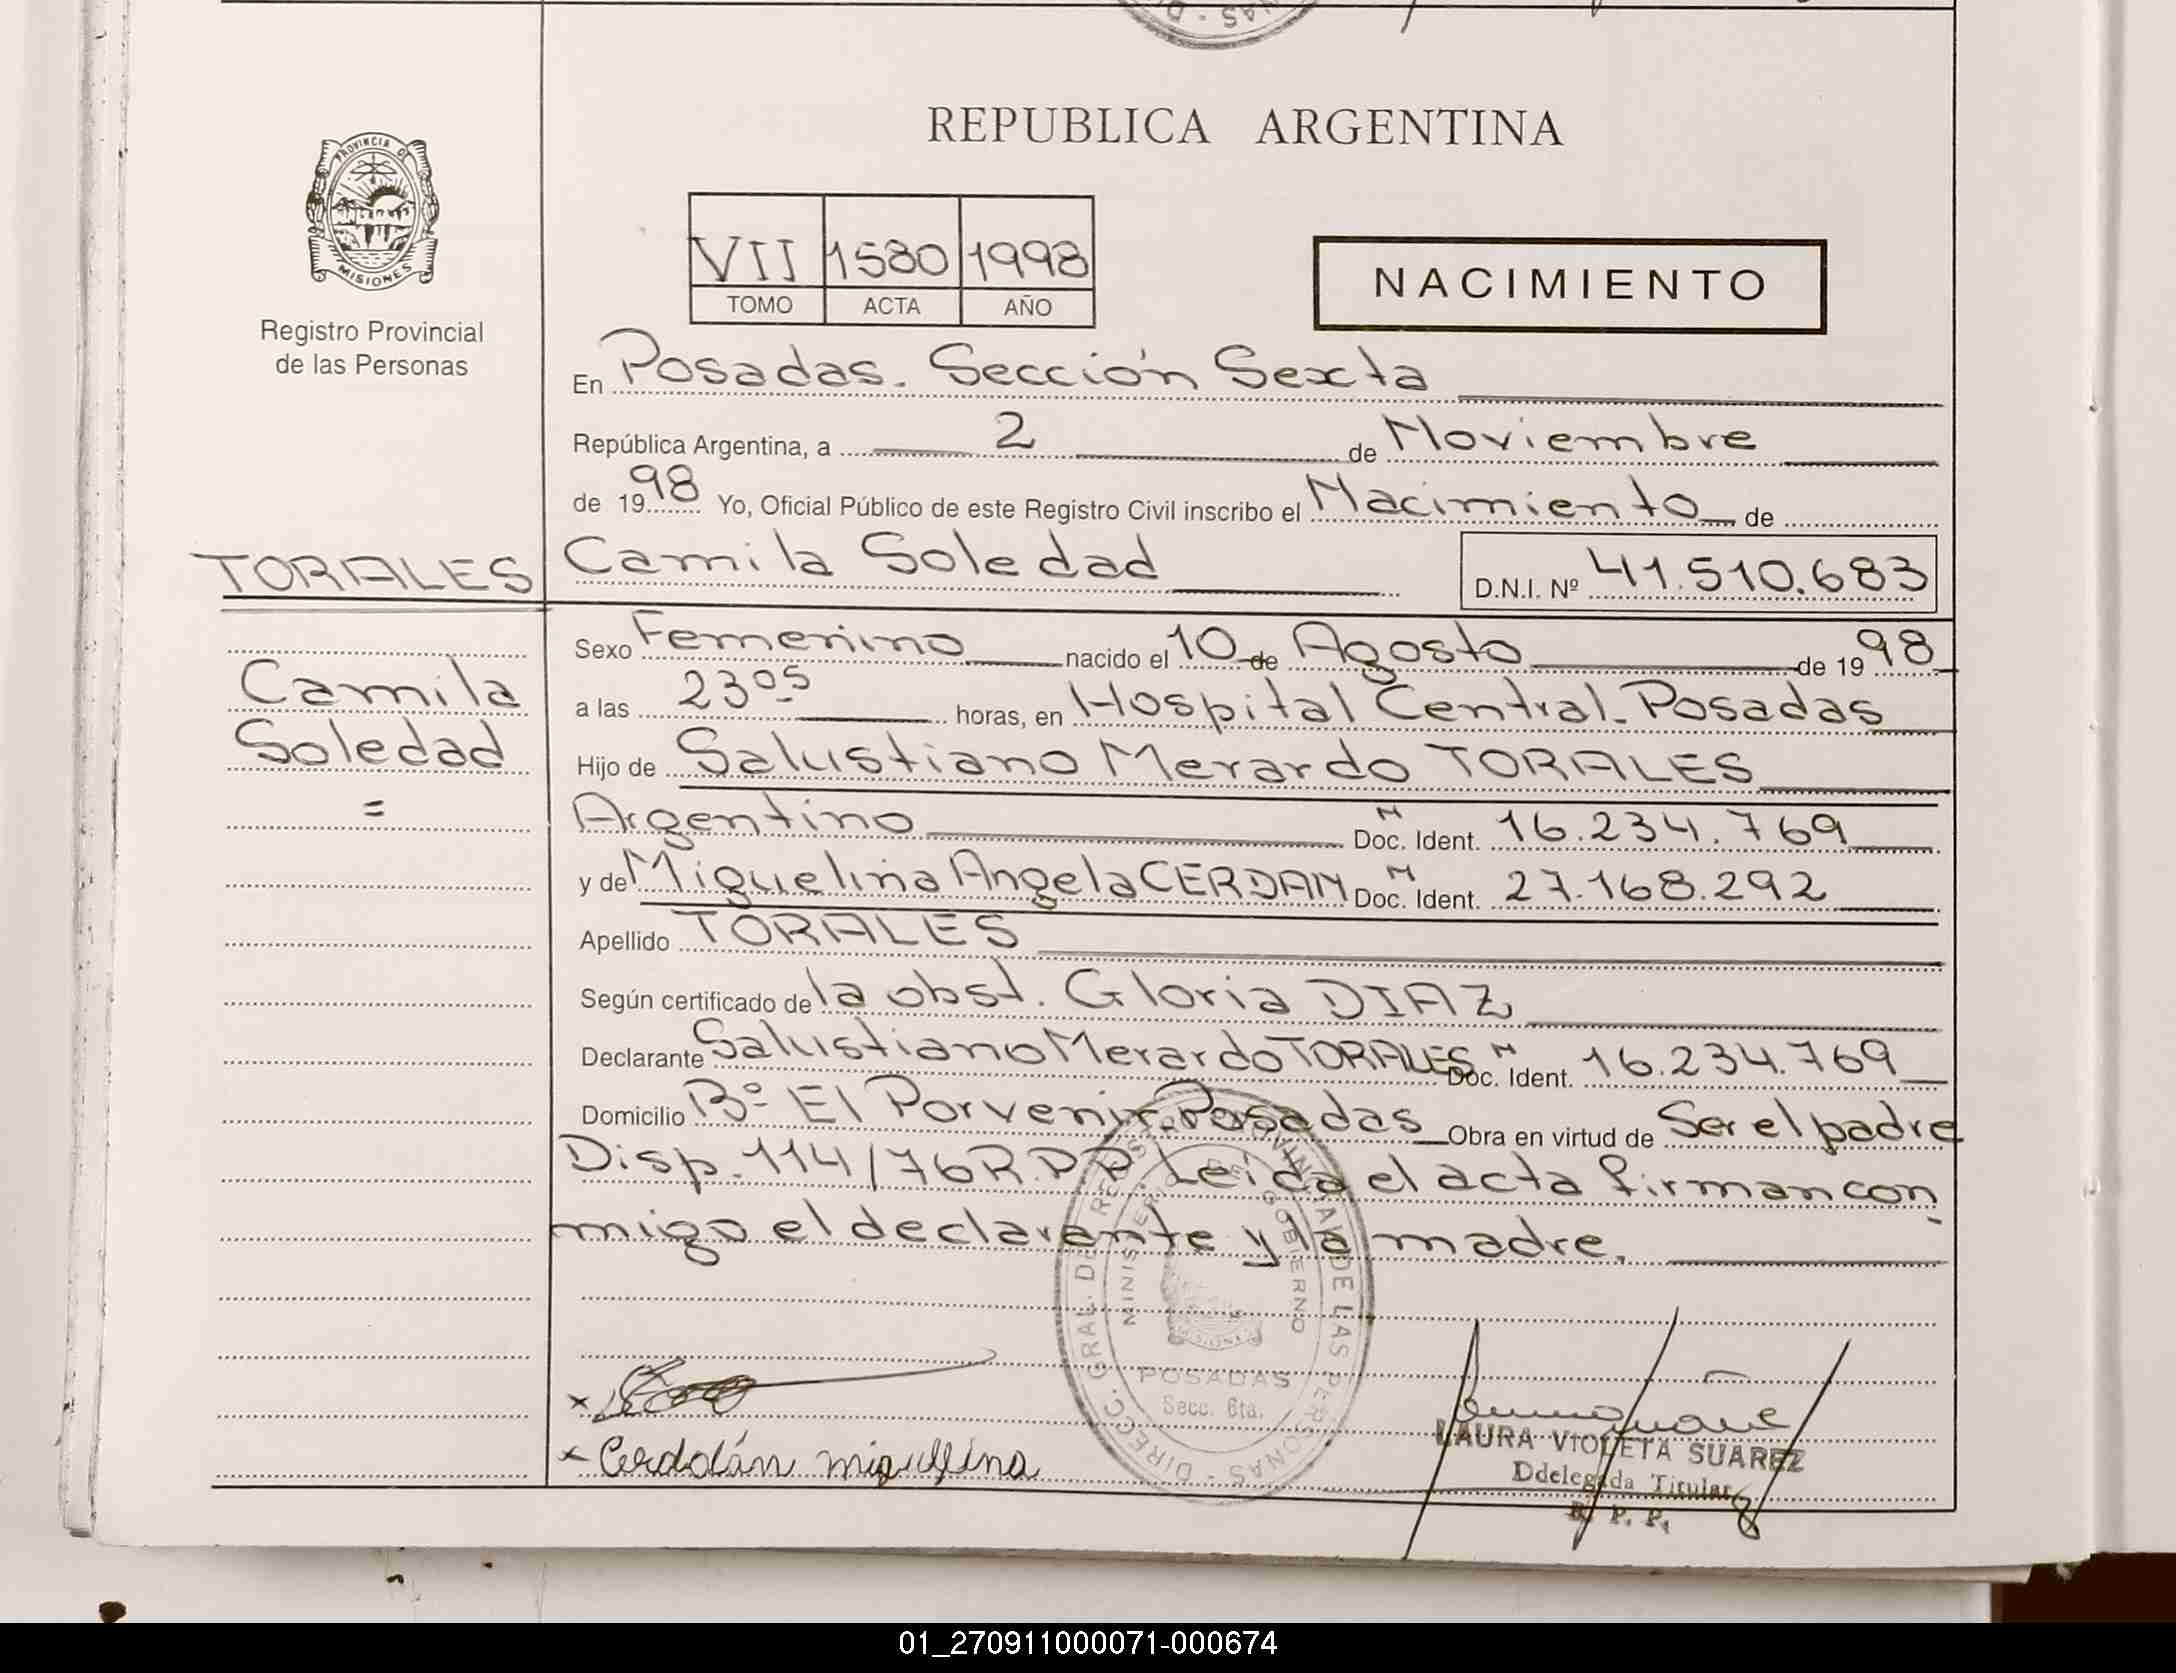 REPUBLICA ARGENTINA
PROVINCIA D
MISIONES
Registro Provincial
de las Personas
VII 1580 1998
TOMO ACTA AÑO
NACIMIENTO
En Posadas. Sección Sexta
República Argentina, a 2 de Noviembre
de 1998 Yo, Oficial Público de este Registro Civil inscribo el Nacimiento de
TORALES Camila Soledad D.N.I. Nº 41.510.683
Camila
Soledad
=
Sexo Femenino nacido el 10 de Agosto de 1998
a las 23 05 horas, en Hospital Central. Posadas
Hijo de Salustiano Merardo TORALES
Argentino Doc. Ident. N 16.234.769
y de Miguelina Angela CERDAN Doc. Ident. N 27.168.292
Apellido TORALES
Según certificado de la obst. Gloria DIAZ
Declarante Salustiano Merardo TORALES Doc. Ident. N 16.234.769
Domicilio Bº El Porvenir. Posadas Obra en virtud de Ser el padre
Disp. 114/76 R.P.P. Leída el acta firman con
migo el declarante y la madre.
DIRECC. GRAL. DE REGISTRO PROVINCIAL DE LAS PERSONAS
MINISTERIO DE GOBIERNO
POSADAS
Secc. 6ta.
x
x Cerddán miguelina
LAURA VIOLETA SUAREZ
Ddelegada Titular
R. P. P.
01_270911000071-000674